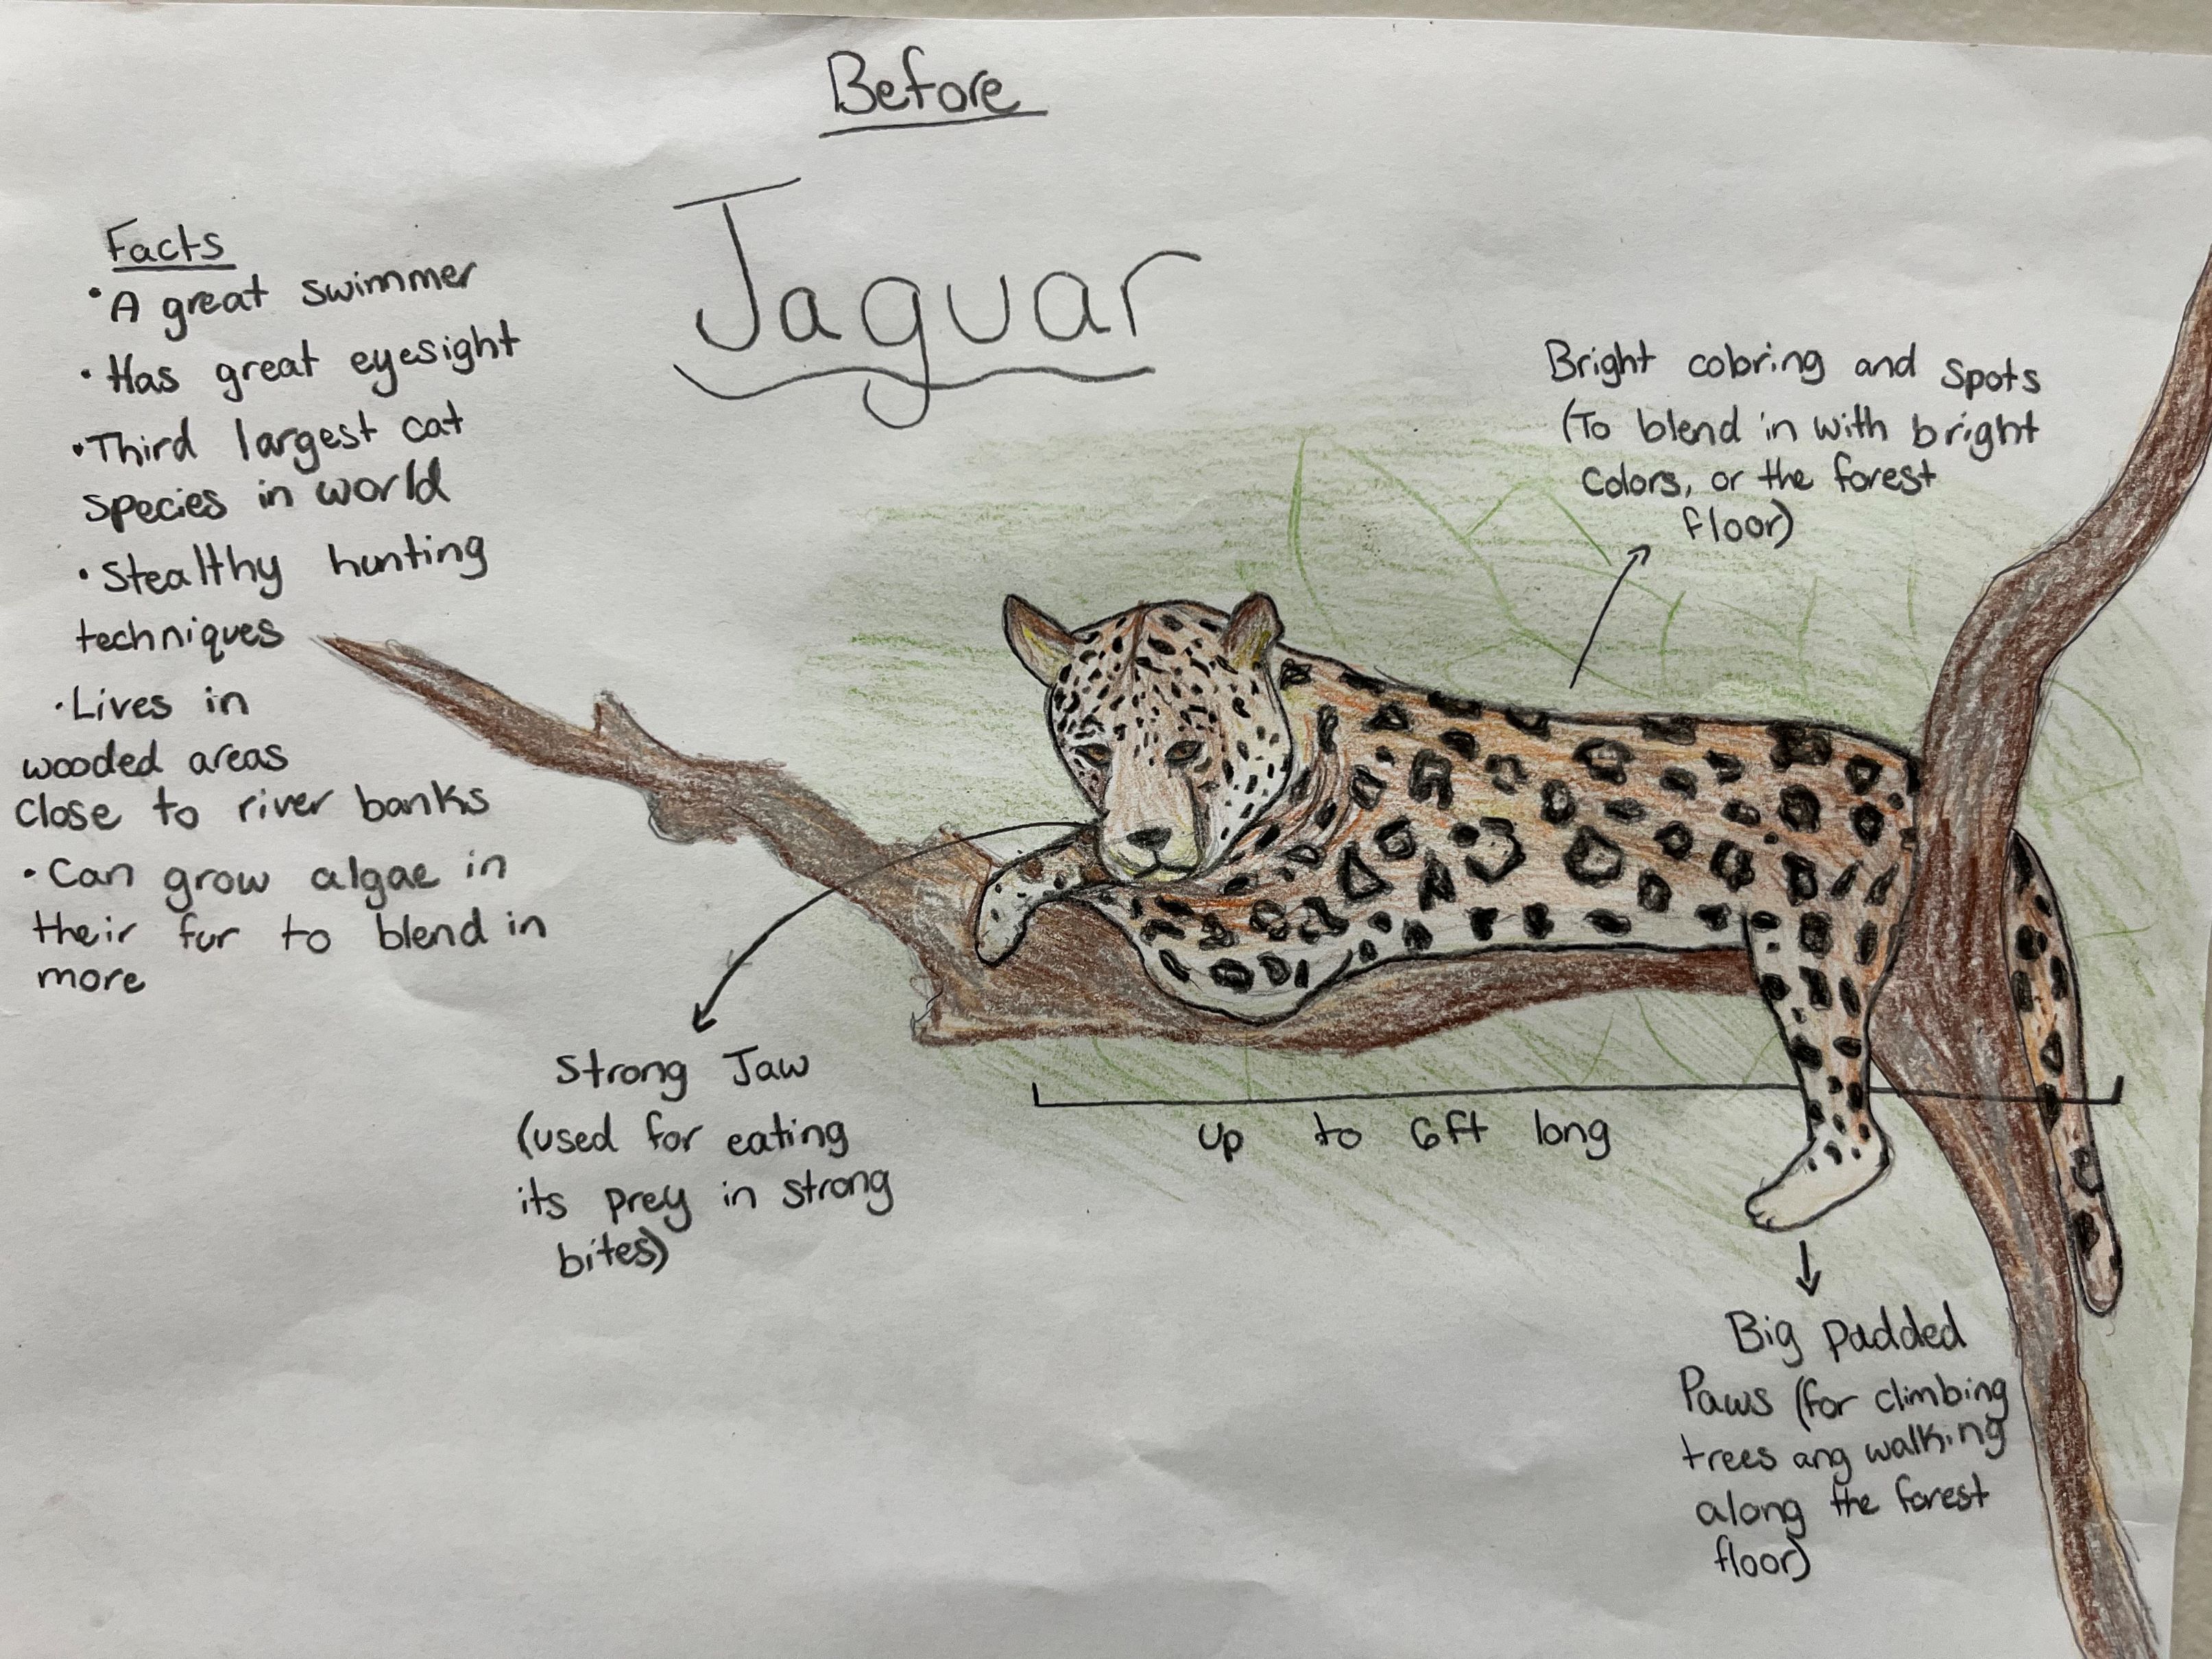 Before
Jaguar
Facts
• A great swimmer
• Has great eyesight
• Third largest cat
species in world
• Stealthy hunting
techniques
• Lives in
wooded areas
close to river banks
• Can grow algae in
their fur to blend in
more
Bright coloring and spots
(To blend in with bright
colors, or the forest
floor)
Strong Jaw
(used for eating
its prey in strong
bites)
up to 6ft long
Big padded
Paws (for climbing
trees ang walking
along the forest
floor)